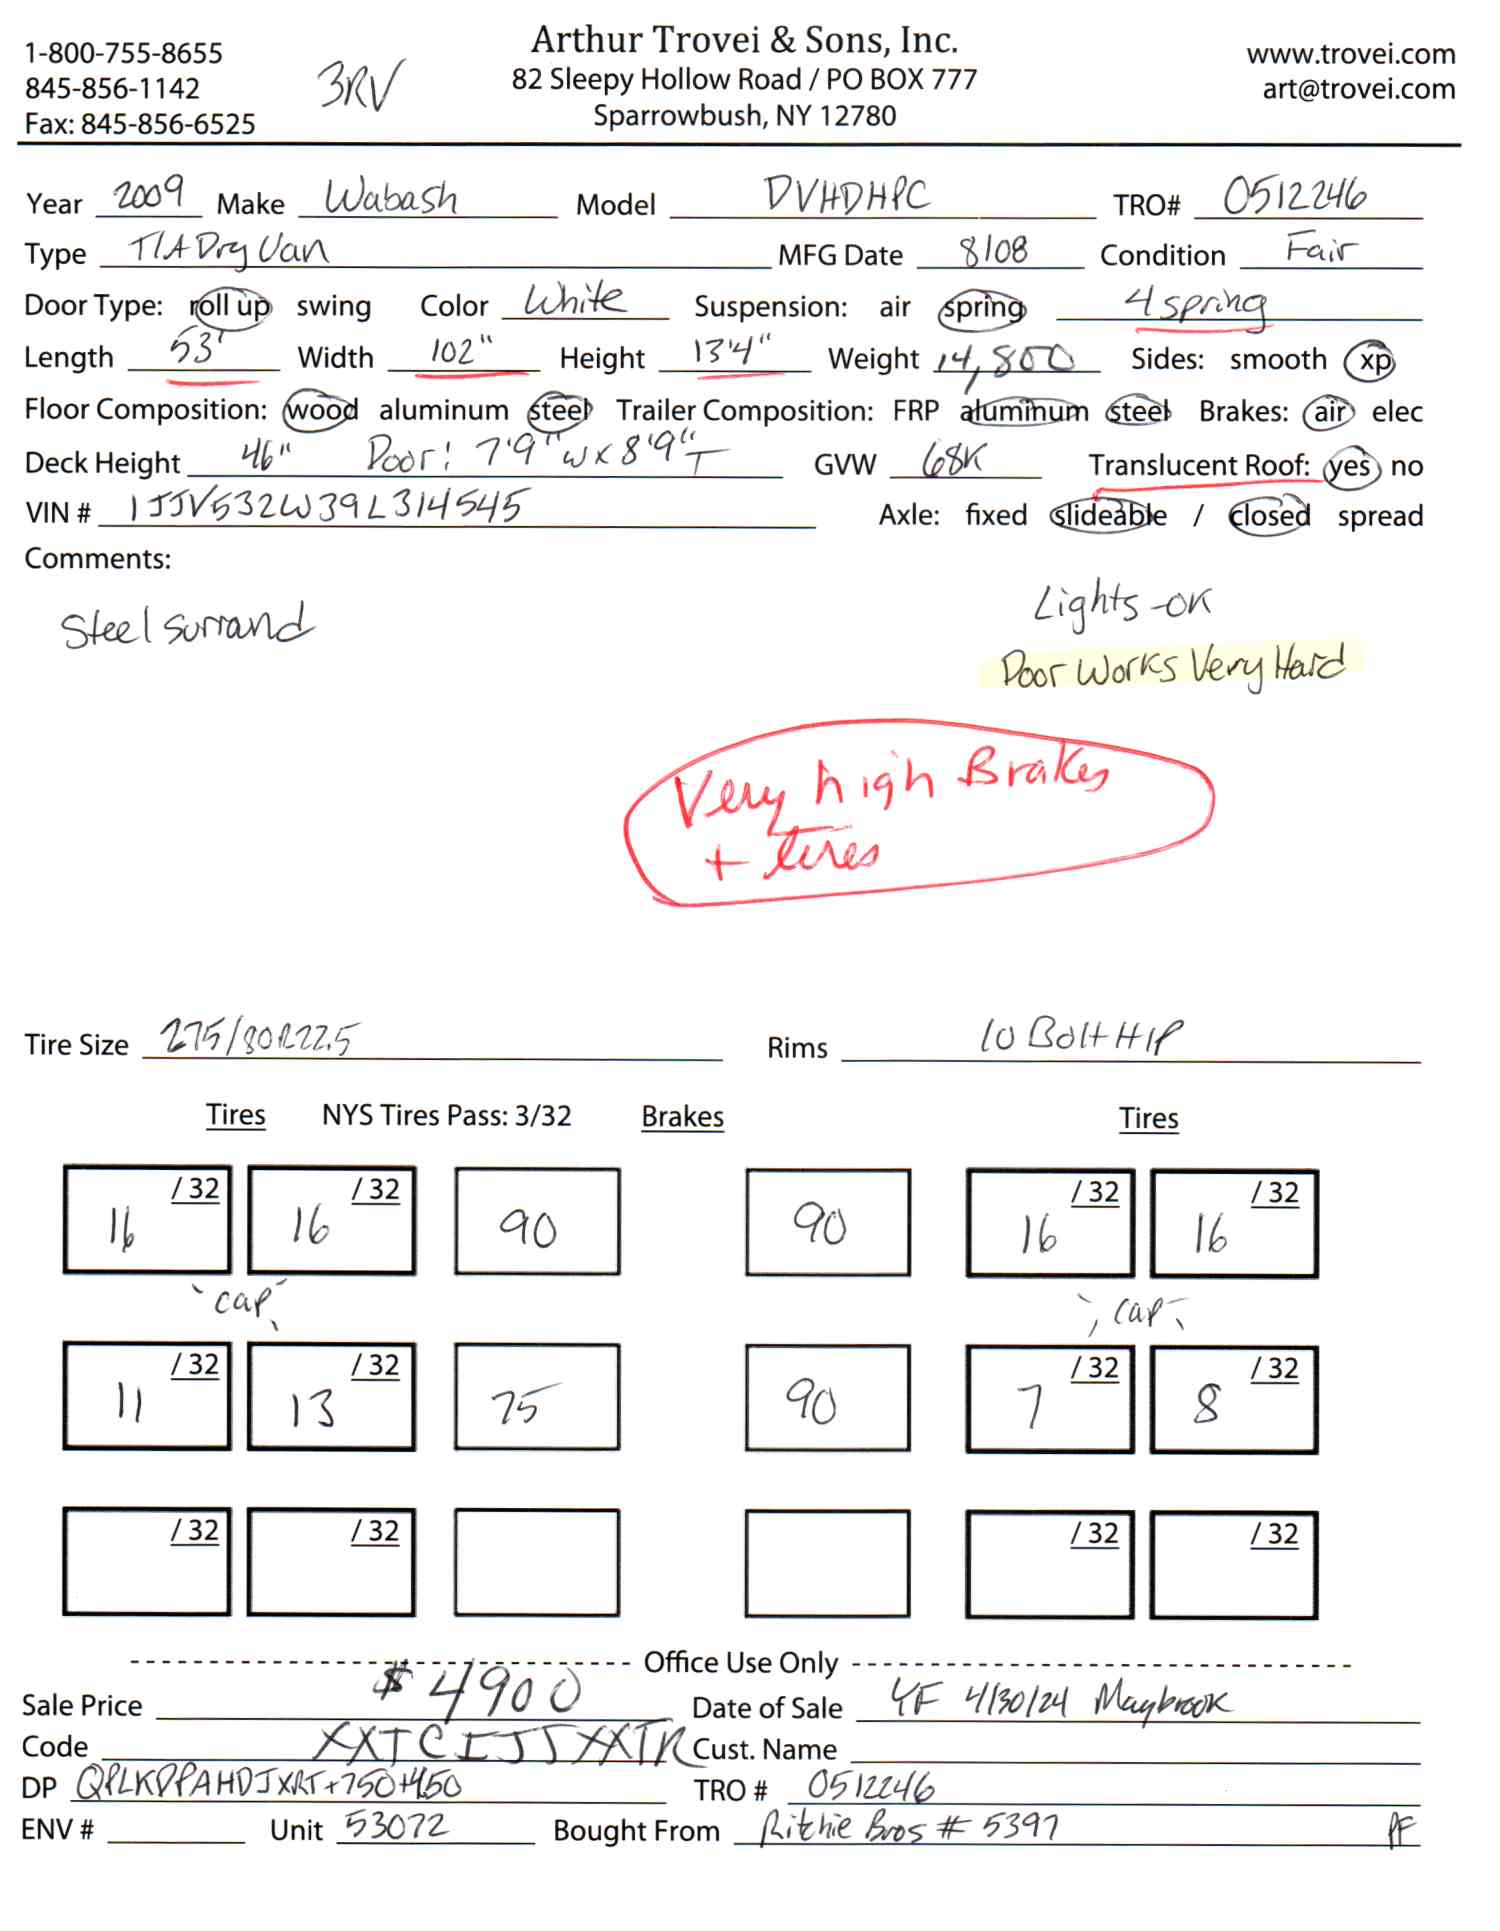 Arthur Trovei & Sons, Inc.
1-800-755-8655 82 Sleepy Hollow Road / PO BOX 777 www.trovei.com
845-856-1142 3RV Sparrowbush, NY 12780 art@trovei.com
Fax: 845-856-6525
Year 2009 Make Wabash Model DVHDHPC TRO# 0512246
Type T/A Dry Van MFG Date 8/08 Condition Fair
Door Type: roll up swing Color White Suspension: air spring 4 spring
Length 53' Width 102" Height 13'4" Weight 14,800 Sides: smooth xp
Floor Composition: wood aluminum steel Trailer Composition: FRP aluminum steel Brakes: air elec
Deck Height 46" Door: 7'9"W x 8'9"T GVW 68K Translucent Roof: yes no
VIN # 1JJV532W39L314545 Axle: fixed slideable / closed spread
Comments:
Steel Surrand Lights - OK
Door Works Very Hard
Very high Brakes
+ tires
Tire Size 275/80R22.5 Rims 10 Bolt H/P
Tires NYS Tires Pass: 3/32 Brakes Tires
16 /32 16 /32 90 90 16 /32 16 /32
cap cap
11 /32 13 /32 75 90 7 /32 8 /32
/32 /32 /32 /32
Office Use Only
Sale Price $4900 Date of Sale YF 4/30/24 Maybrook
Code XXTCIJJXXTR Cust. Name
DP QPLKDPAHDJXRT+750+450 TRO # 0512246
ENV # Unit 53072 Bought From Ritchie Bros # 5397 PF